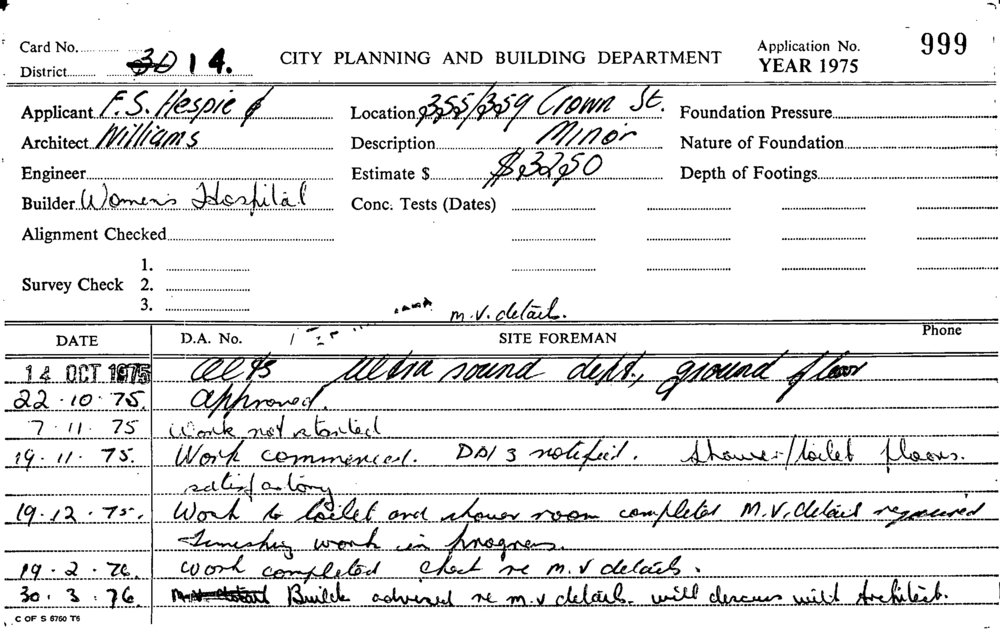 Card No.
District 30 14.
CITY PLANNING AND BUILDING DEPARTMENT
Application No. 999
YEAR 1975
Applicant F.S. Hespie &
Architect Williams
Engineer
Builder Women's Hospital
Alignment Checked
Survey Check 1.
2.
3.
Location 355/359 Crown St.
Description Minor
Estimate $ $3250
Conc. Tests (Dates)
Foundation Pressure
Nature of Foundation
Depth of Footings
m.v. details.
DATE D.A. No. SITE FOREMAN Phone
14 OCT 1975 Alts Ultra sound dept., ground floor
22.10.75. Approved.
7.11.75 Work not started
19.11.75. Work commenced. DBI 3 notified. Shower/toilet floors.
satisfactory
19.12.75. Work to toilet and shower room completed M.V. details required
Finishing work in progress.
19.2.76. Work completed check re m.v details.
30.3.76. Builder advised re m.v details. will discuss with Architect.
C OF S 6760 T6